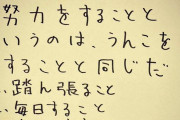 努力をすることと
いうのは、うんこを
することと同じだ
、踏ん張ること
、毎日すること